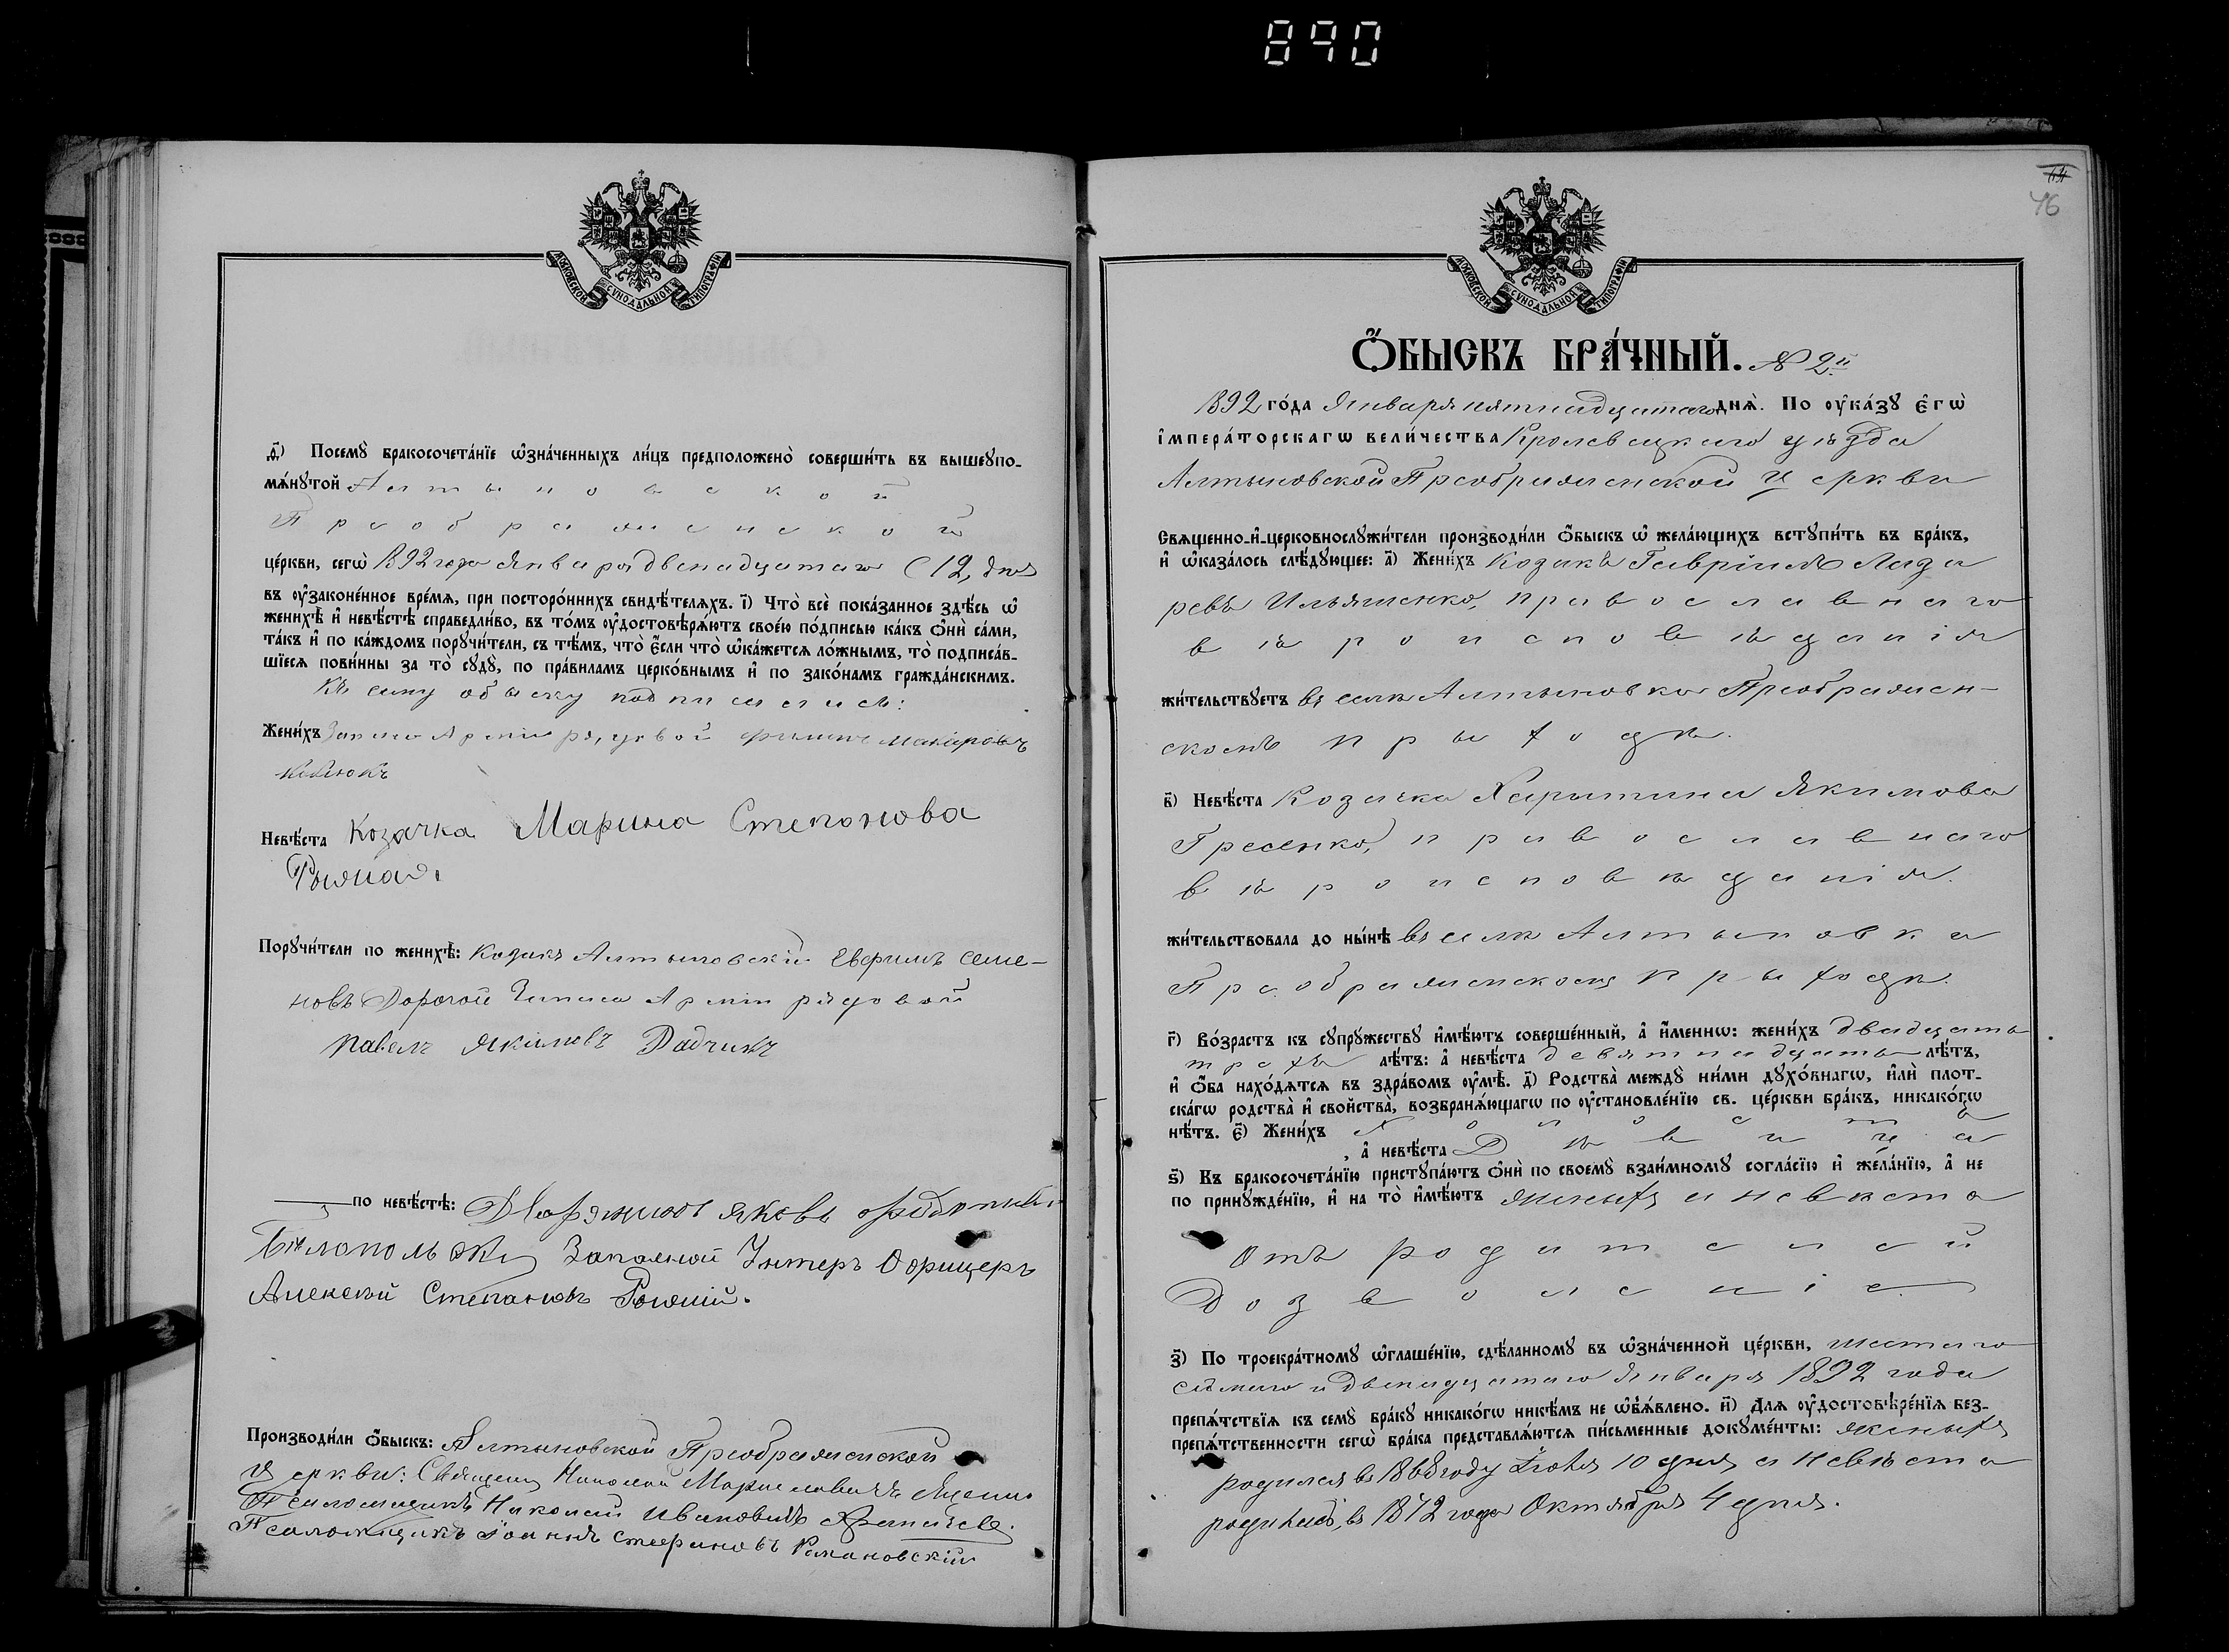 890
МОСКОВСКОЙ СѴНОДАЛЬНОЙ ТИПОГРАФІИ
д҃і) Посемꙋ̀ бракосочета́нїе ѡ҆зна́ченныхъ ли́цъ предположено̀ соверши́ть въ вышеꙋпо-
мѧ́нꙋтой Алтыновской
Преображенской
це́ркви, сегѡ̀ 1892 года Января двенадцатаго (12, дня
въ ᲂу҆зако́ненное вре́мѧ, при посторо́ннихъ свидѣ́телѧхъ. і҃) Что̀ всѐ пока́занное здѣ́сь ѡ҆
женихѣ̀ и҆ невѣ́стѣ справедли́во, въ то́мъ ᲂу҆достовѣрѧ́ютъ свое́ю по́дписью ка́къ ѻ҆нѝ са́ми,
та́къ и҆ по ка́ждомъ порꙋчи́тели, съ тѣ́мъ, что̀ є҆́сли что̀ ѡ҆ка́жетсѧ ло́жнымъ, то̀ подписа́в-
шїесѧ пови́нны за то̀ сꙋдꙋ̀, по пра́виламъ церко́внымъ и҆ по зако́намъ гражда́нскимъ.
Къ сему обыску подписались:
Жени́хъ Запаса Армiи рядовой Филипъ Макаровъ
Невѣ́ста Козачка Марина Степонова
Рыжая.
Порꙋчи́тели по женихѣ̀: Козакъ Алтыновскій Евфимъ Семе-
новъ Дорогой Запаса Армiи рядовой
Павелъ Якимовъ Радчикъ
по невѣ́стѣ: Яковъ
Запасной Унтеръ Офицеръ
Алексей Степановъ Рыжий.
Производи́ли ѻ҆́быскъ: Алтыновской Преображенской
Церкви: Священ Николай
Псаломщикъ Николай Ивановичъ
Псаломщикъ Іоаннъ Стефановъ Романовскій
76
МОСКОВСКОЙ СѴНОДАЛЬНОЙ ТИПОГРАФІИ
Ѻ҆́БЫСКЪ БРА́ЧНЫЙ. № 2й
1892 го́да Января пятнадцатаго днѧ̀. По ᲂу҆ка́зꙋ є҆гѡ̀
і҆мпера́торскагѡ вели́чества Кролевецкаго уѣзда
Алтыновской Преображенской Церкви
Свѧщенно-и҆-церковнослꙋжи́тели производи́ли ѻ҆́быскъ ѡ҆ жела́ющихъ встꙋпи́ть въ бра́къ,
и҆ ѡ҆каза́лось слѣ́дꙋющее: а҃) Жени́хъ Козакъ Гавріилъ Лаза
ревъ Ильяшенко, православнаго
вѣроисповѣданія
жи́тельствꙋетъ въ селѣ Алтыновкѣ Преображен-
скомъ приходѣ.
в҃) Невѣ́ста Козачка Харитина Якимова
Гресенко, православнаго
вѣроисповѣданія.
жи́тельствовала до ны́нѣ въ селѣ Алтыновка
Преображенскомъ приходѣ.
г҃) Во́зрастъ къ сꙋпрꙋ́жествꙋ и҆мѣ́ютъ соверше́нный, а҆ и҆́меннѡ: жени́хъ двадцать
трехъ лѣ́тъ: а҆ невѣ́ста девятнадцать лѣ́тъ,
и҆ ѻ҆́ба нахо́дѧтсѧ въ здра́вомъ ᲂу҆мѣ̀. д҃) Родства̀ междꙋ̀ ни́ми дꙋхо́внагѡ, и҆лѝ плот-
ска́гѡ родства̀ и҆ свойства̀, возбранѧ́ющагѡ по ᲂу҆становле́нїю св. це́ркви бра́къ, никако́гѡ
нѣ́тъ. є҃) Жени́хъ Холостъ
, а҆ невѣ́ста Дѣвица
ѕ҃) Къ бракосочета́нїю пристꙋпа́ютъ ѻ҆нѝ по своемꙋ̀ взаи́мномꙋ согла́сїю и҆ жела́нїю, а҆ не
по принꙋжде́нїю, и҆ на то̀ и҆мѣ́ютъ женихъ и невѣста
Отъ родителей
Дозволеніе.
з҃) По троекра́тномꙋ ѡ҆глаше́нїю, сдѣ́ланномꙋ въ ѡ҆зна́ченной це́ркви, шестаго
сѣмаго и двенадцатаго Января 1892 года
препѧ́тствїѧ къ семꙋ̀ бра́кꙋ никако́гѡ никѣ́мъ не ѡ҆б̾ѧ́влено. и҃) Длѧ ᲂу҆достовѣре́нїѧ без-
препѧ́тственности сегѡ̀ бра́ка представлѧ́ютсѧ пи́сьменные докꙋме́нты: женихъ
родился въ 1868 году Іюля 10 дня а невѣста
родилась, въ 1872 года Октября 4 дня.